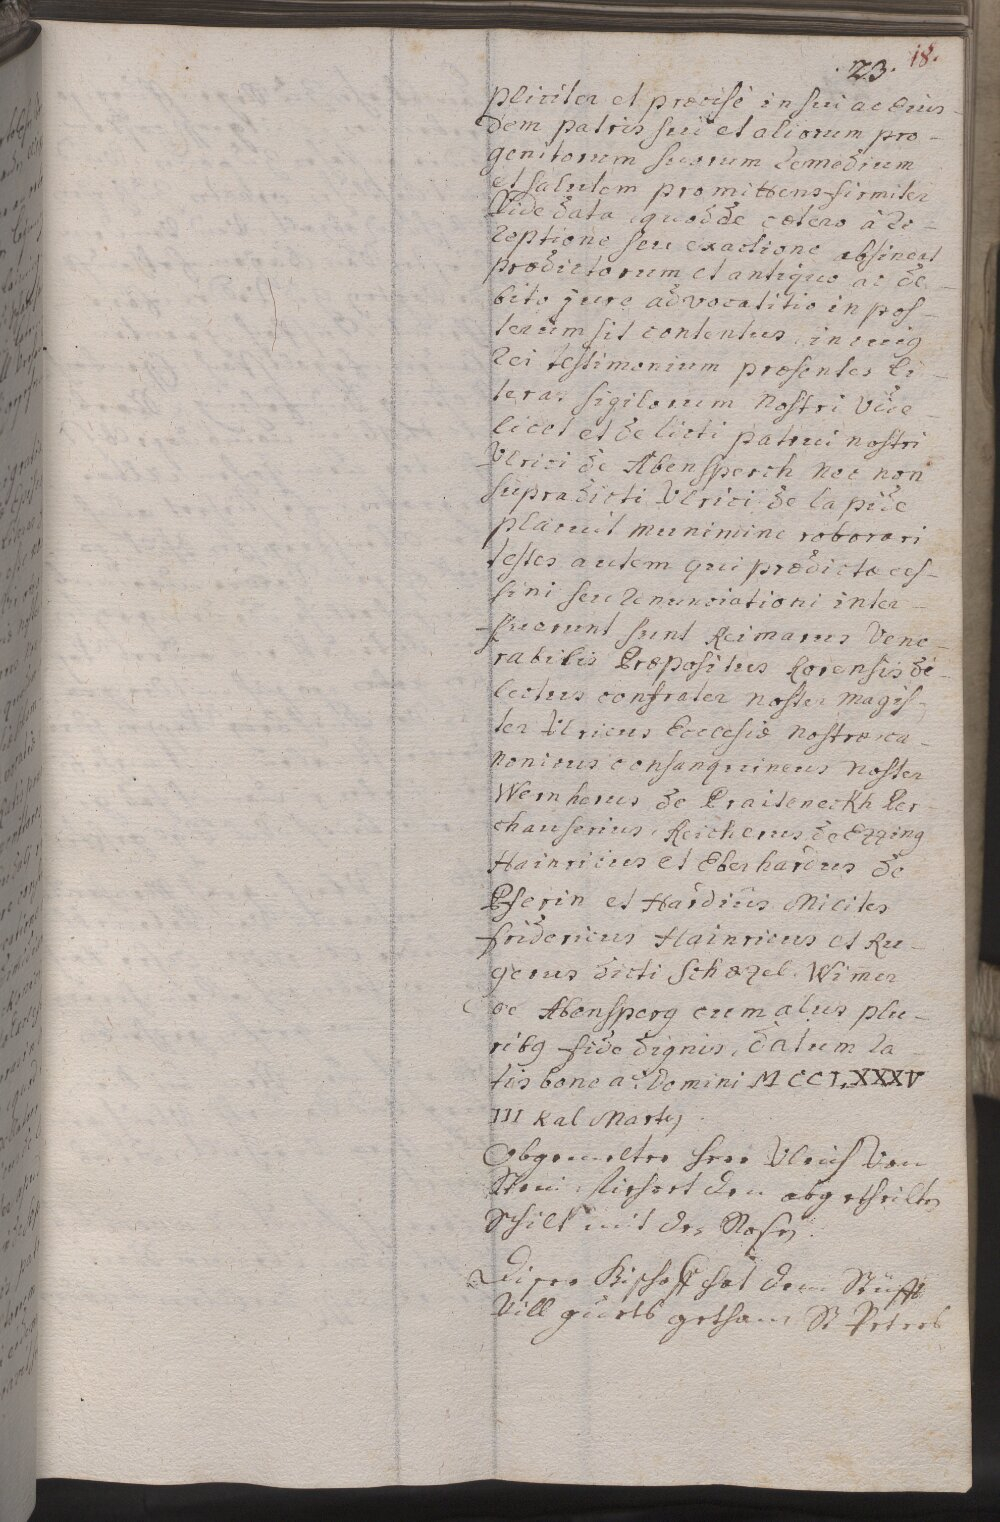 ·23· 18.
pliciter et præcisè in sui ac eius-
dem patris sui et aliorum pro-
genitorum suorum Remedium
et salutem promittens firmiter
fide data quod de cætero à Re-
ceptione seu exactione absineat
prædictorum et antiquo ac de-
bito jure advocatitio in pos-
terum sit contentus, in cuiq
Rei testimonium præsentes li-
teras sigilorum Nostri Vide-
licet et delicti patrui nostri
Ulrici de Abensperch nec non
supradicti Ulrici de lapide
placuit munimine roborari
testes autem qui prædictæ ces-
sini seu Renunciationi inter-
fuerunt sunt Reimarus Vene-
rabilis Præpositus Rorensis di-
lectus confrater noster magis-
ter Ulricus Ecclesiæ nostræ ca-
nonicus consanquineus noster
Wernherus de Praiteneckh Per-
chauserius, Reicherus de Ezzing
Hainricus et Eberhardus de
Pferin et Hardius Milites
fridericus Hainricus et Ru-
gerus dicti Schæzel. Wimer
de Abensperg cum alus plu-
ribq fide dignis, datum Ra-
tisbone a.º Domini MCCLXXXV
III Kal Martij
Obgemelter herr Ulrich Von
Stein fiehrt den abgetheilten
Schilt mit der Rosen.
Dieser Bischoff hat dem Stüfft
Vill guets gethan St Peters